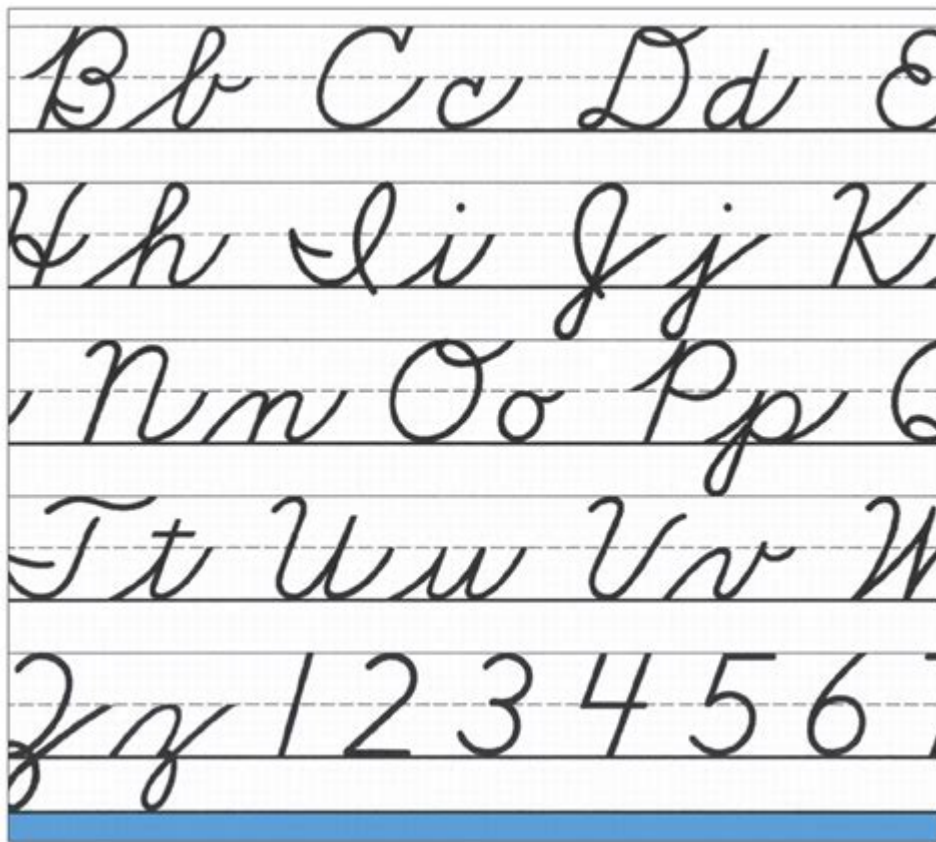 Bb Cc Dd E
Hh Ii Jj K
Nn Oo Pp Q
Tt Uu Vv W
Zz 1 2 3 4 5 6